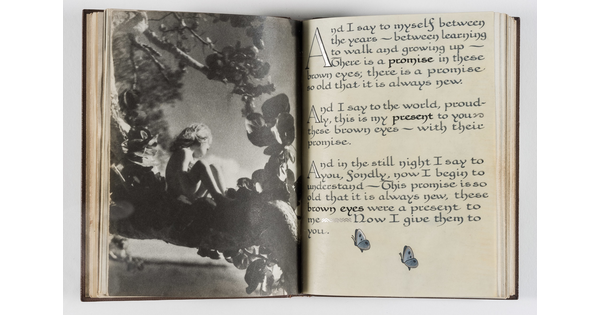 And I say to myself between
the years — between learning
to walk and growing up —
There is a promise in these
brown eyes; there is a promise
so old that it is always new.
And I say to the world, proud-
ly, this is my present to you
these brown eyes — with their
promise.
And in the still night I say to
you, fondly, now I begin to
understand — This promise is so
old that it is always new, these
brown eyes were a present to
me — Now I give them to
you.